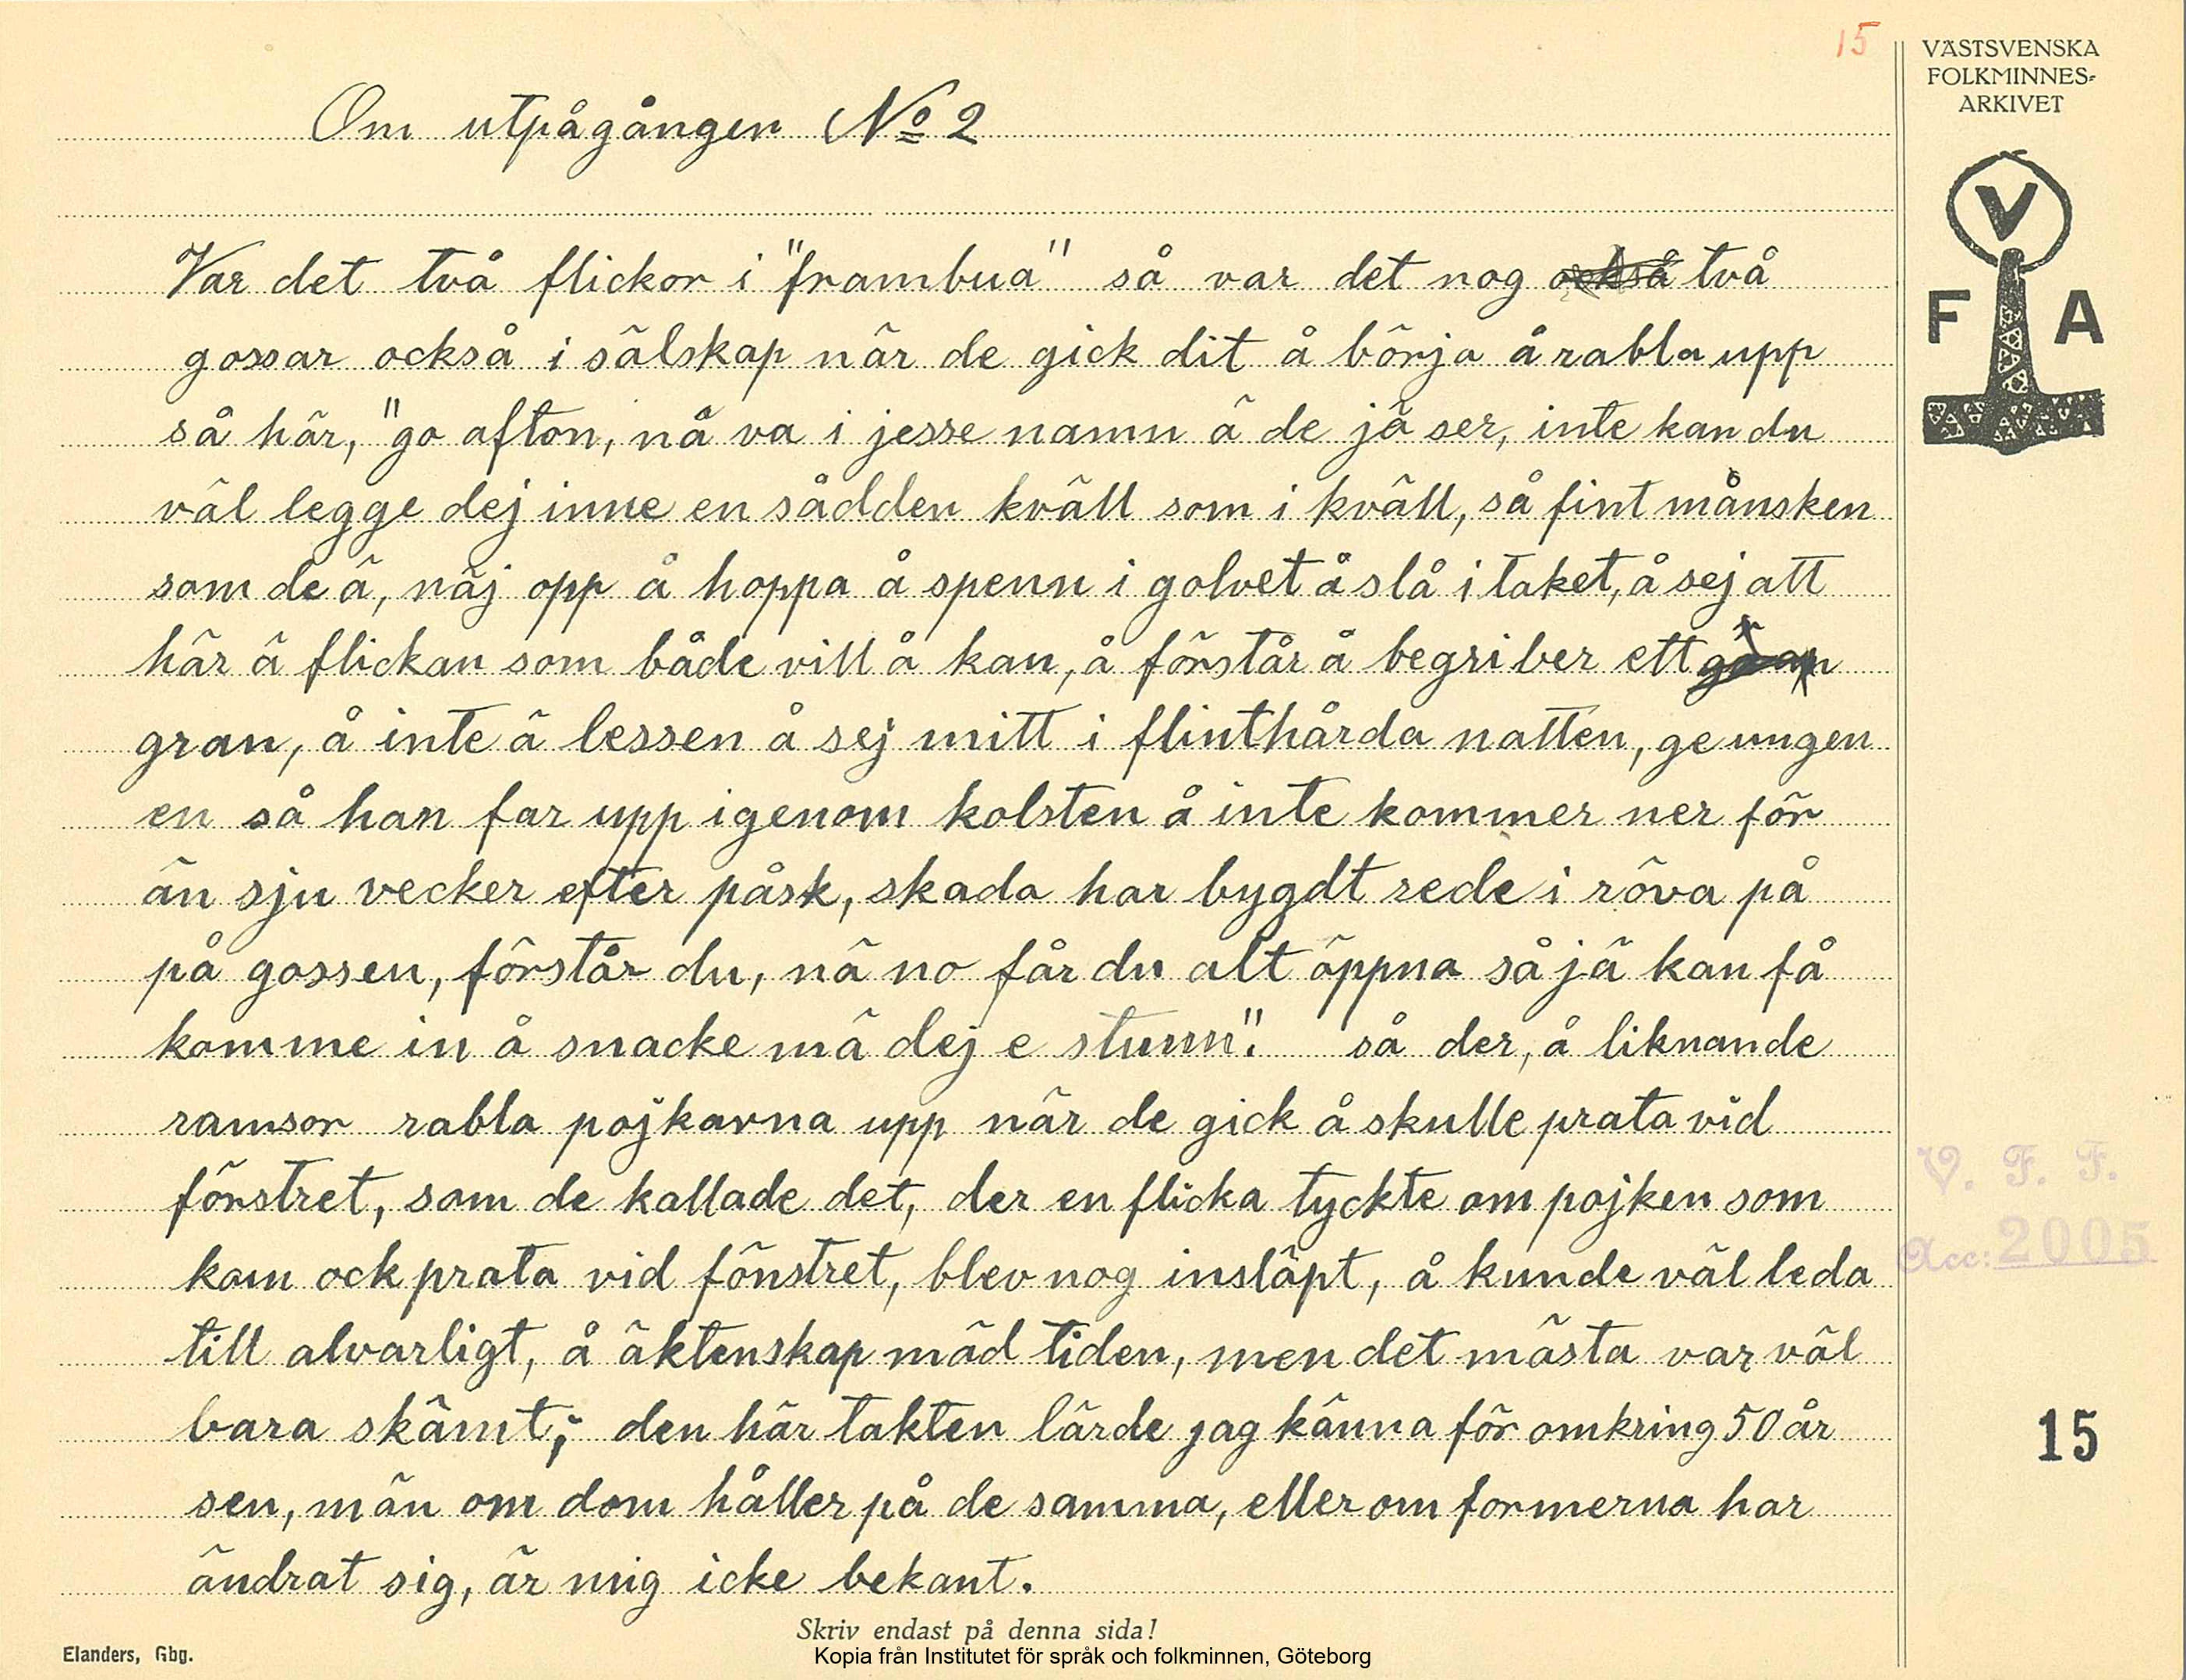 15
VÄSTSVENSKA
FOLKMINNES-
ARKIVET
V
F A
Om utpågången No 2
Var det två flickor i "frambua" så var det nog också två
gossar också i sälskap när de gick dit å börja å rabla upp
så här, "go afton, nå va i jesse namn ä de jä ser, inte kan du
väl legge dej inne en sådden kväll som i kväll, så fint månsken
som de ä, näj opp å hoppa å spenn i golvet å slå i taket, å sej att
här ä flickan som både vill å kan, å förstår å begriber ett
gran, å inte ä lessen å sej mitt i flinthårda natten, ge ungen
en så han far upp igenom kolsten å inte kommer ner för
än sju vecker efter påsk, skada har bygdt rede i röva på
på gossen, förstår du, nä no får du alt öppna så jä kan få
komme in å snacke mä dej e stunn". så der, å liknande
ramsor rabla pojkarna upp när de gick å skulle prata vid
fönstret, som de kallade det, der en flicka tyckte om pojken som
kom ock prata vid fönstret, blev nog insläpt, å kunde väl leda
till alvarligt, å äktenskap mäd tiden, men det mästa var väl
bara skämt; den här takten lärde jag känna för omkring 50 år
sen, män om dom håller på de samma, eller om formerna har
ändrat sig, är mig icke bekant.
V. F. F.
Acc: 2005
15
Skriv endast på denna sida!
Elanders, Gbg.
Kopia från Institutet för språk och folkminnen, Göteborg